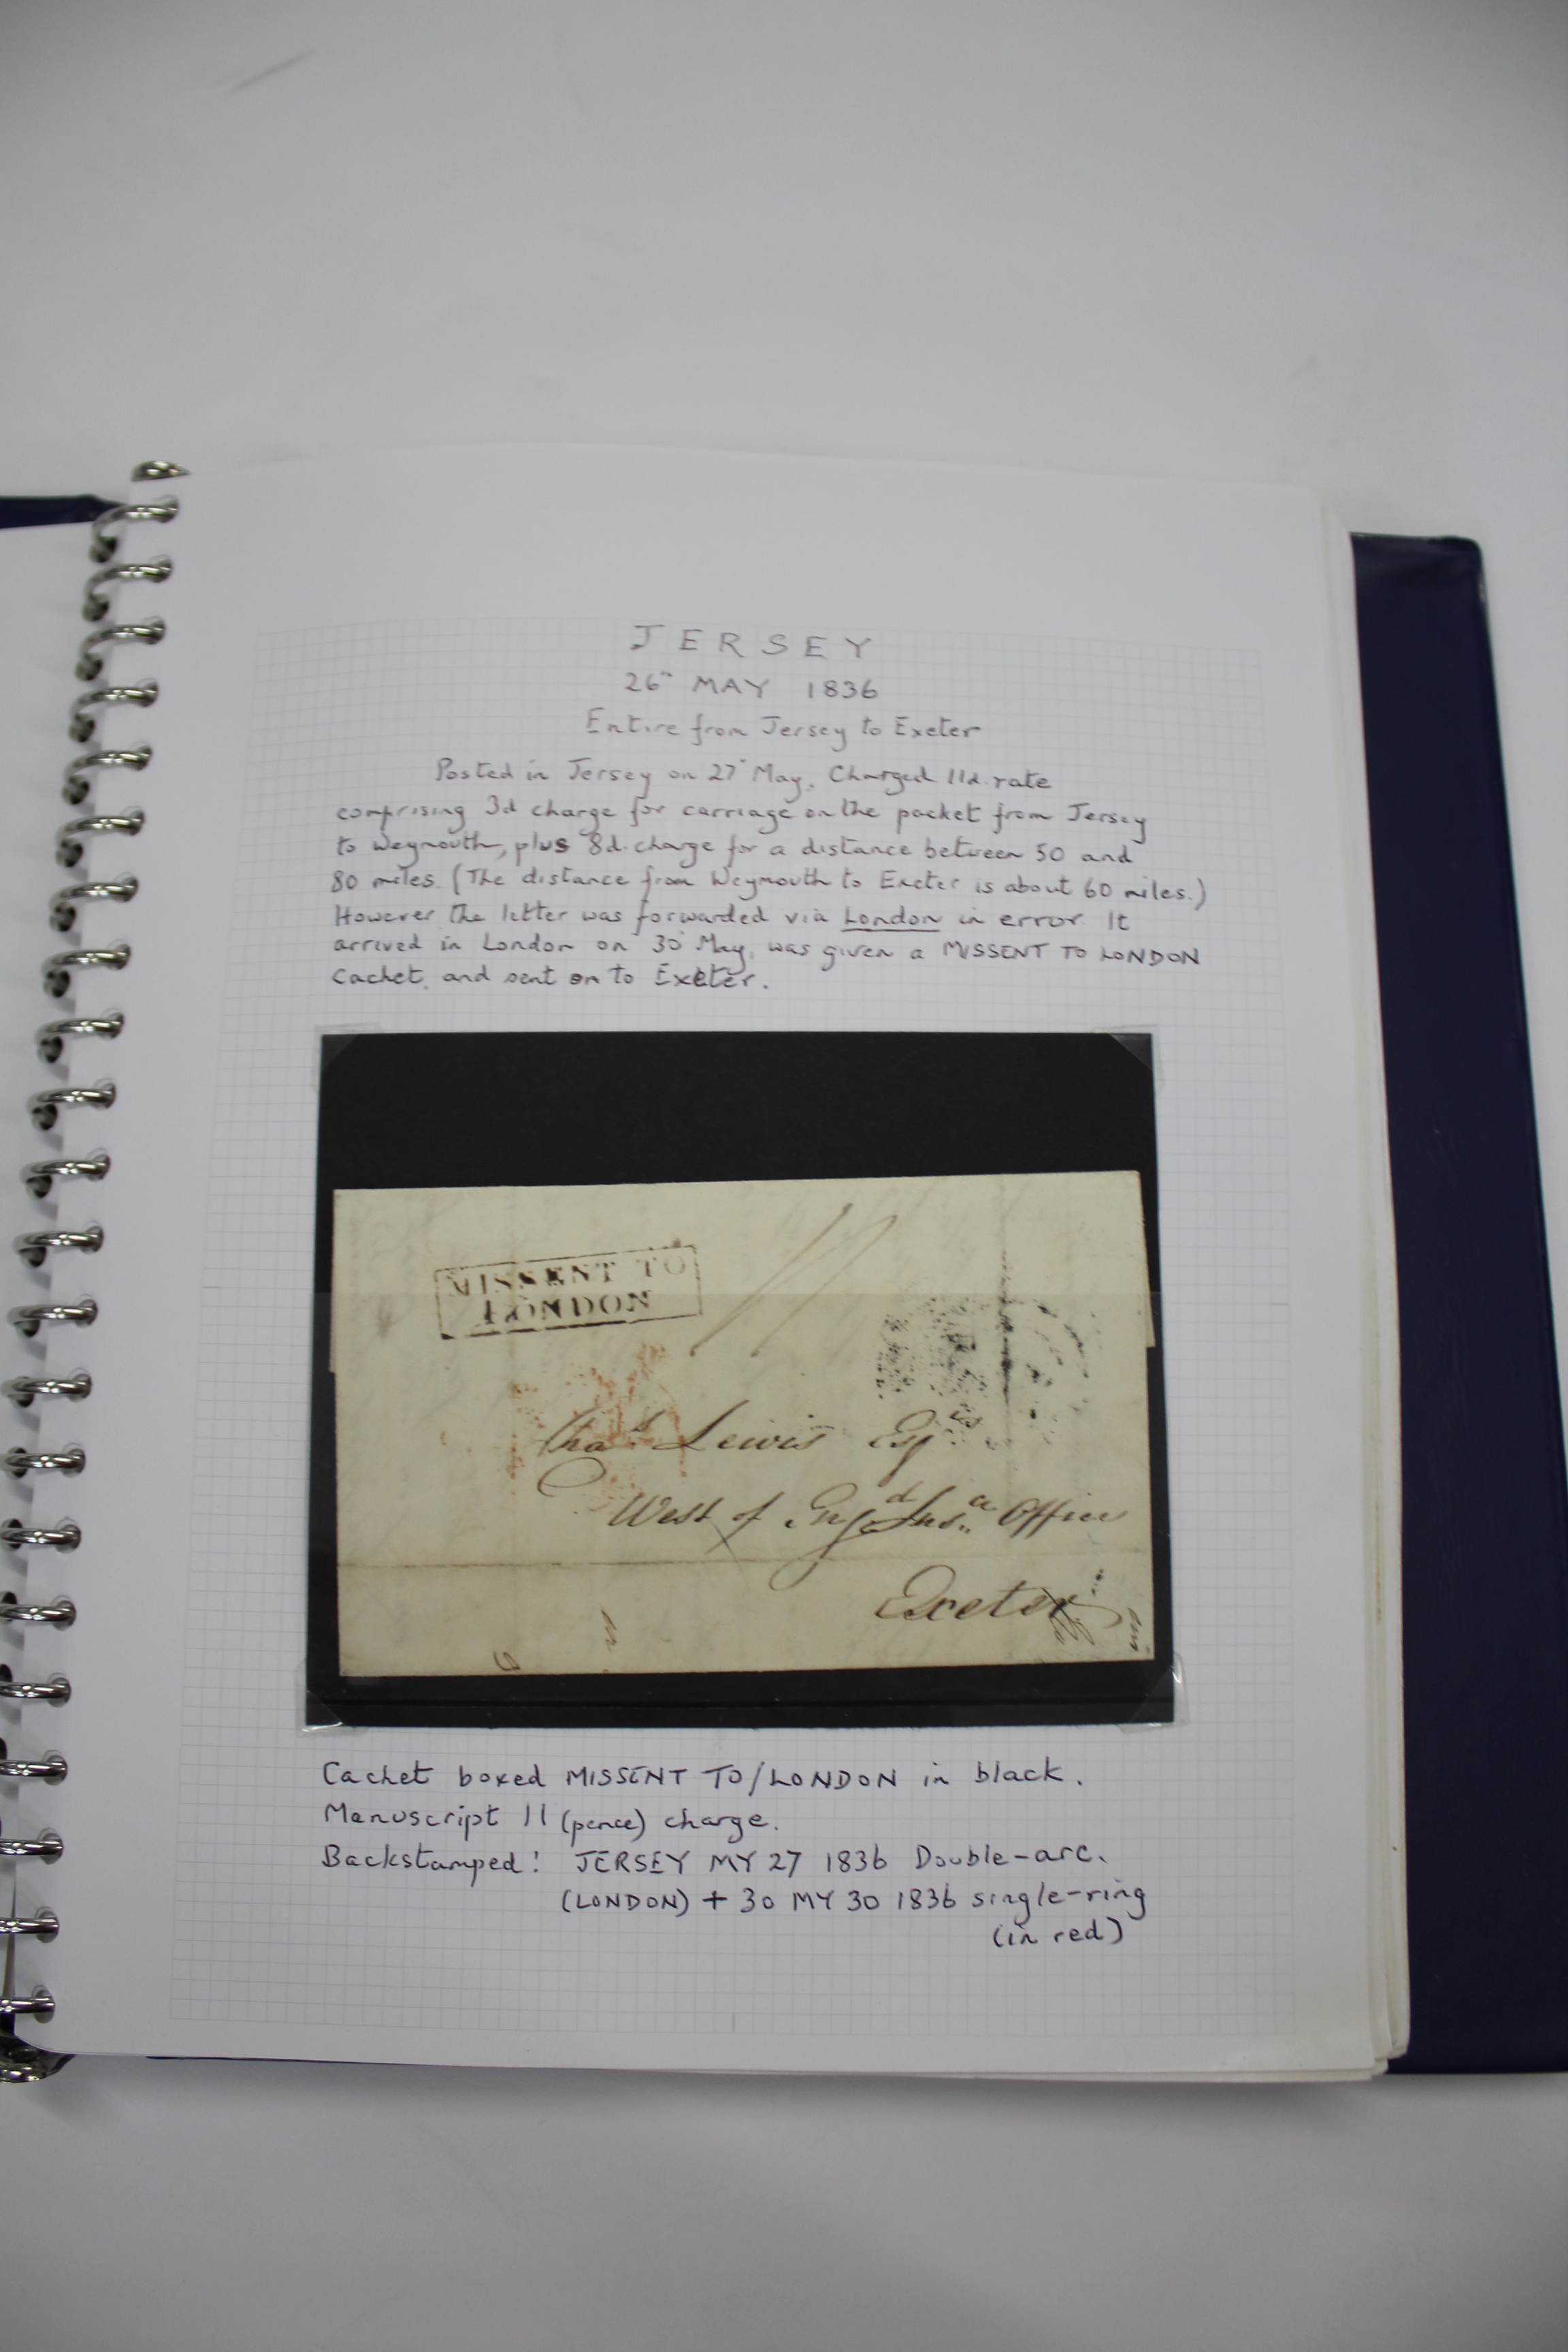 JERSEY
26th MAY 1836
Entire from Jersey to Exeter
Posted in Jersey on 27 May. Charged 11d. rate
comprising 3d charge for carriage on the packet from Jersey
to Weymouth, plus 8d. charge for a distance between 50 and
80 miles. (The distance from Weymouth to Exeter is about 60 miles.)
However the letter was forwarded via London in error. It
arrived in London on 30 May, was given a MISSENT TO LONDON
cachet, and sent on to Exeter.
MISSENT TO
LONDON
11
Thos. Lewis Esqre
West of Engd Insce Office
Exeter
Cachet boxed MISSENT TO/LONDON in black.
Manuscript 11 (pence) charge.
Backstamped: JERSEY MY 27 1836 Double-arc.
(LONDON) + 30 MY 30 1836 single-ring
(in red)